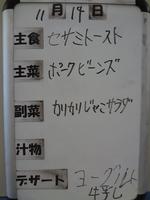 11月14日
主食 セサミトースト
主菜 ポークビーンズ
副菜 かりかりじゃこサラダ
汁物
デザート ヨーグルト
牛乳